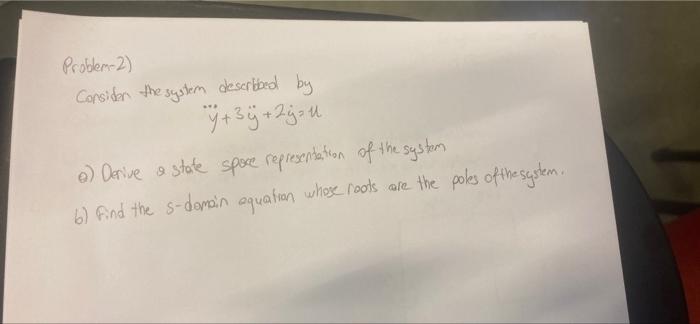 Problem-2)
Consider the system described by
y⃛+3ÿ+2ẏ=u
a) Derive a state space representation of the system
b) Find the s-domain equation whose roots are the poles of the system.